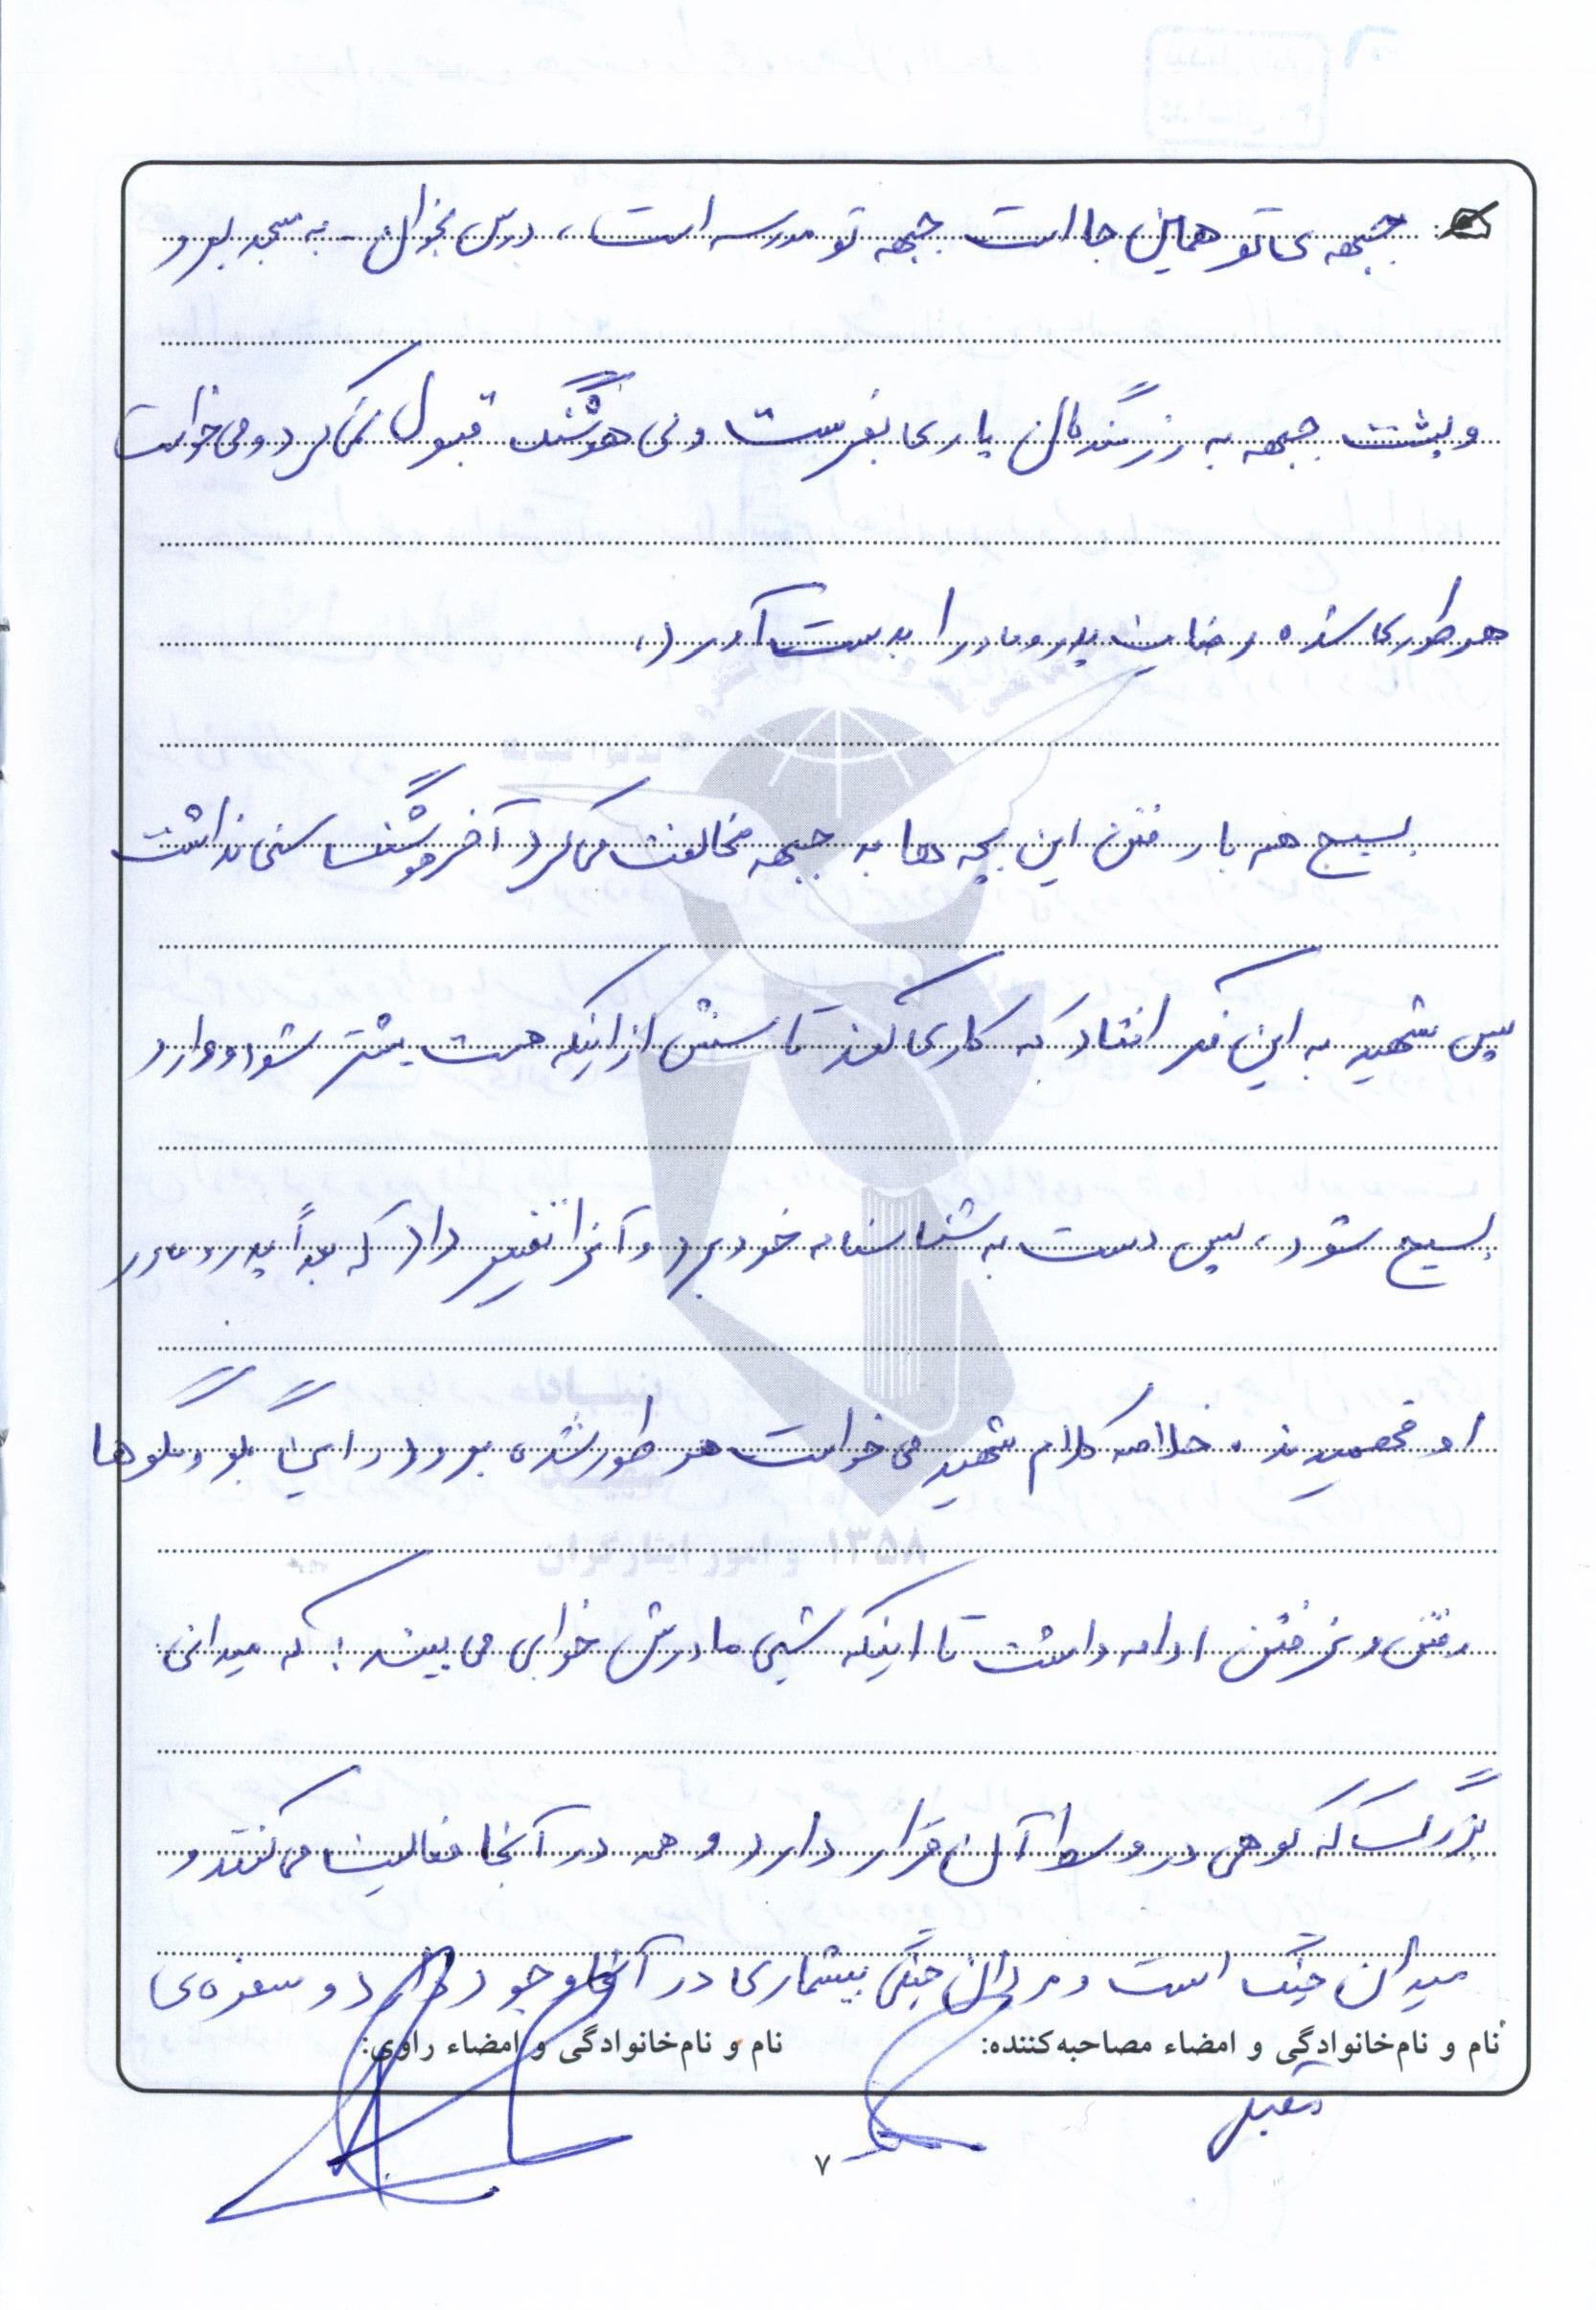 جبهه ی تو همین جا است جبهه تو مدرسه است، درس بخوان - به مسجد برو
و پشت جبهه به رزمندگان یاری بفرست ولی هوشنگ قبول نمی کرد و می خواست
هر طوری شده رضایت پدر و مادر را بدست آورد.
بسیج هم با رفتن این بچه ها به جبهه مخالفت می کرد آخر هوشنگ سنی نداشت
پس شهید به این فکر افتاد که کاری کند تا سنش از اینکه هست بیشتر شود و وارد
بسیج شود، پس دست به شناسنامه خود برد و آنرا تغییر داد که بعداً پدر و مادر
او فهمیدند. خلاصه کلام شهید می خواست هر طور شده برود و این بگو و مگوها
رفتن و نرفتن ادامه داشت تا اینکه شبی مادرش خوابی می بیند: که میدانی
بزرگ است که کوهی در وسط آن قرار دارد و همه در آنجا فعالیت می کنند و
میدان جنگ است و مردان جنگی بیشماری در آنجا وجود دارد و سفره ی
نام و نام‌خانوادگی و امضاء مصاحبه‌کننده: نام و نام‌خانوادگی و امضاء راوی:
۷
۱۳۵۸ و امور ایثارگران